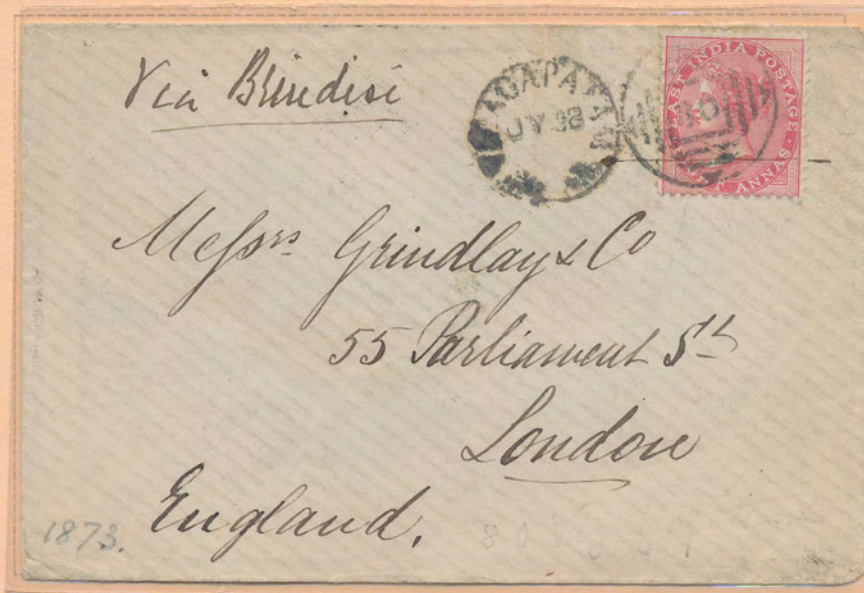 Via Brindisi
EAST INDIA POSTAGE
ANNAS
Messrs Grindlay & Co
55 Parliament St
London
England.
1873.